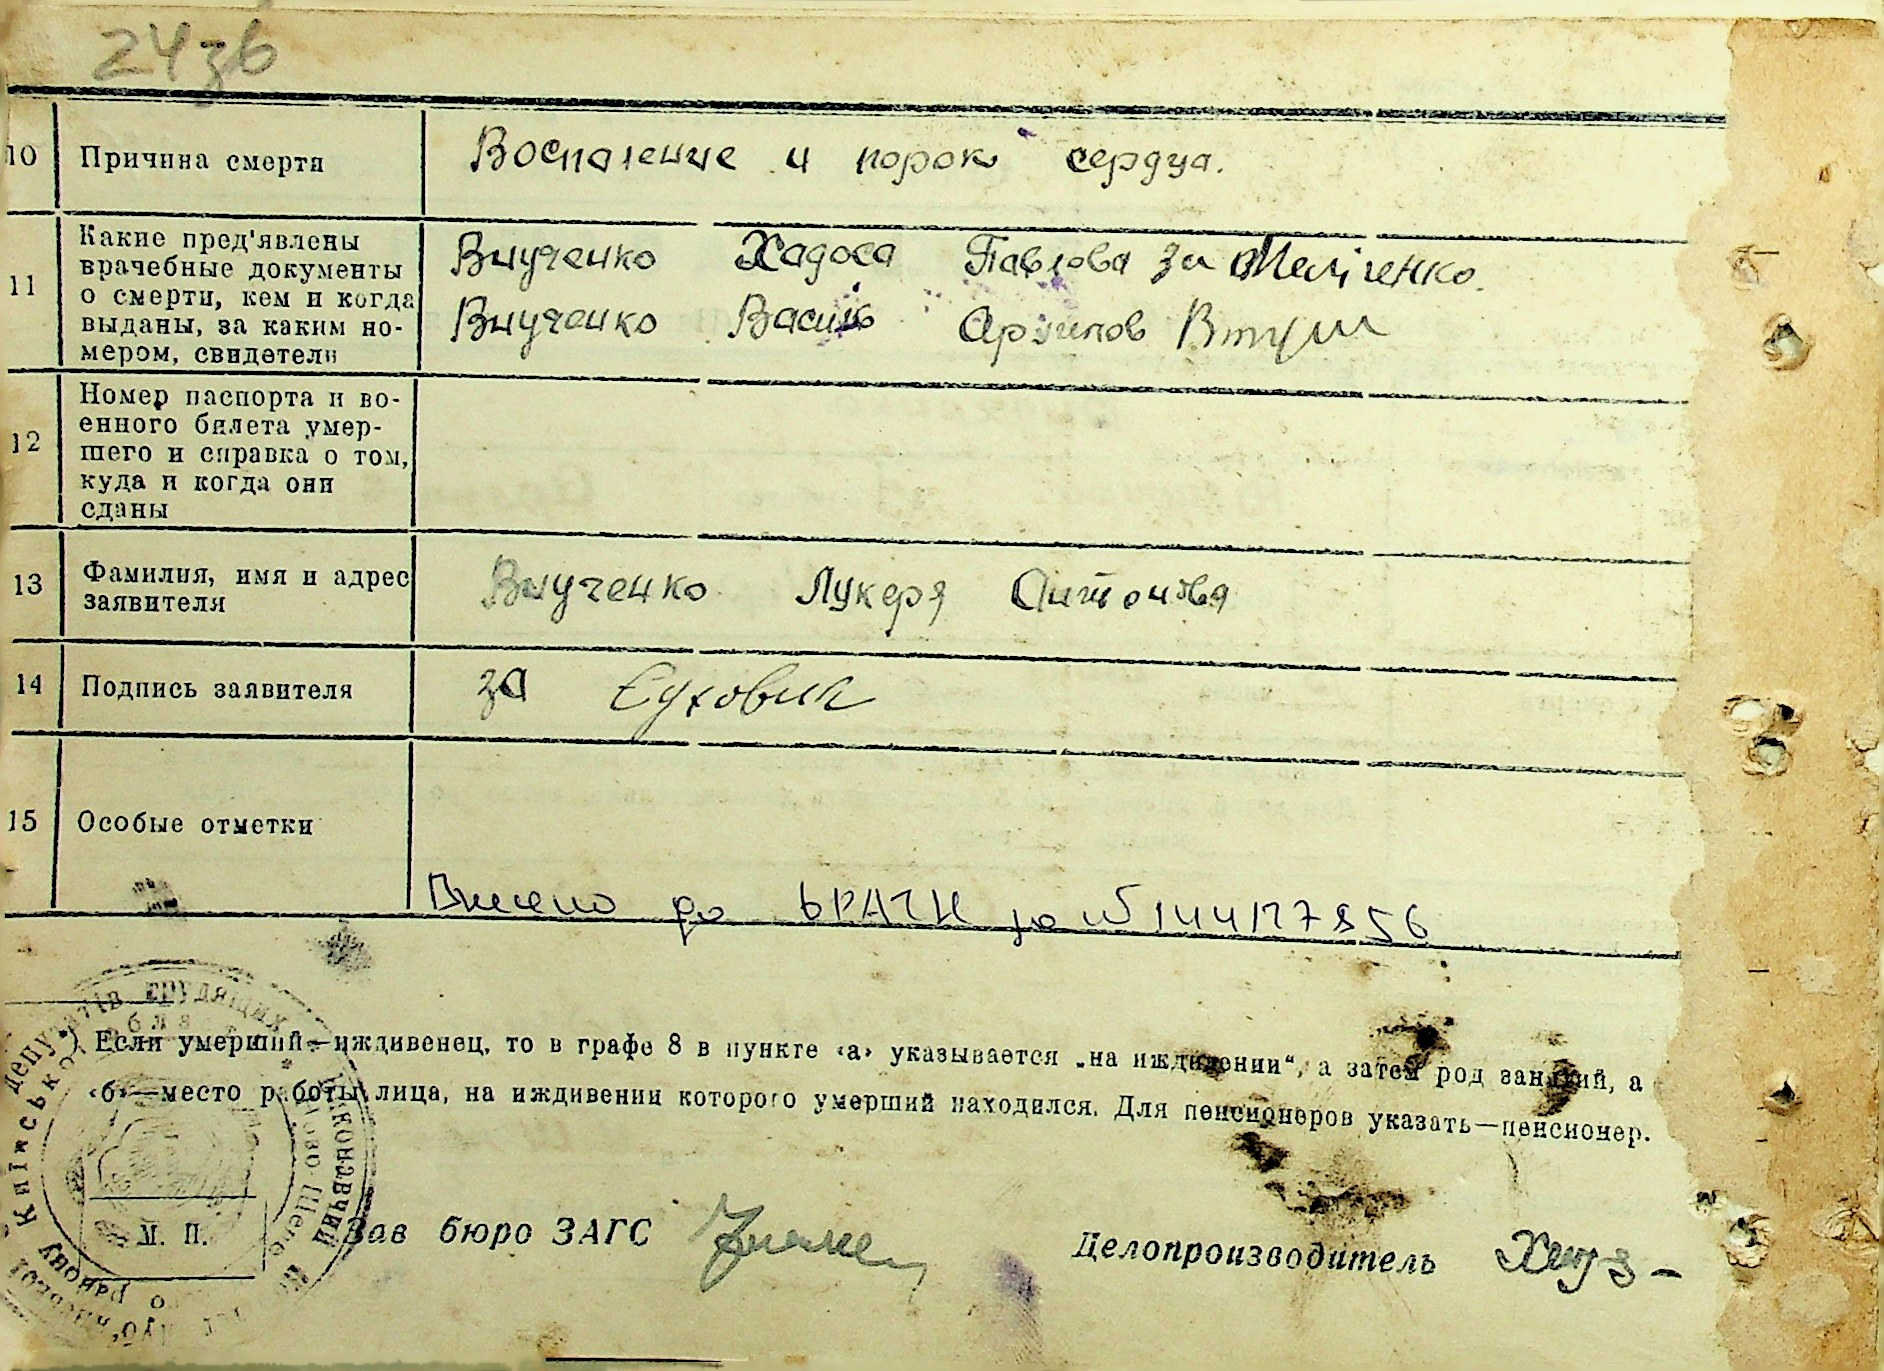 24зв
10 Причина смерти Воспаление и порок сердца.
11 Какие пред'явлены
врачебные документы
о смерти, кем и когда
выданы, за каким но-
мером, свидетели
Внученко Хадоса Павлова за
Внученко Василь Архипов
12 Номер паспорта и во-
енного билета умер-
шего и справка о том,
куда и когда они
сданы
13 Фамилия, имя и адрес
заявителя
Внученко Лукеря Антонова
14 Подпись заявителя за
15 Особые отметки
Внесено до за № 144127856
депутатів трудящих
Київської
*) Если умерший—иждивенец, то в графе 8 в пункте «а» указывается „на иждивении“, а затем род занятий, а
«б»—место работы лица, на иждивении которого умерший находился. Для пенсионеров указать—пенсионер.
М. П.
Зав бюро ЗАГС
Делопроизводитель